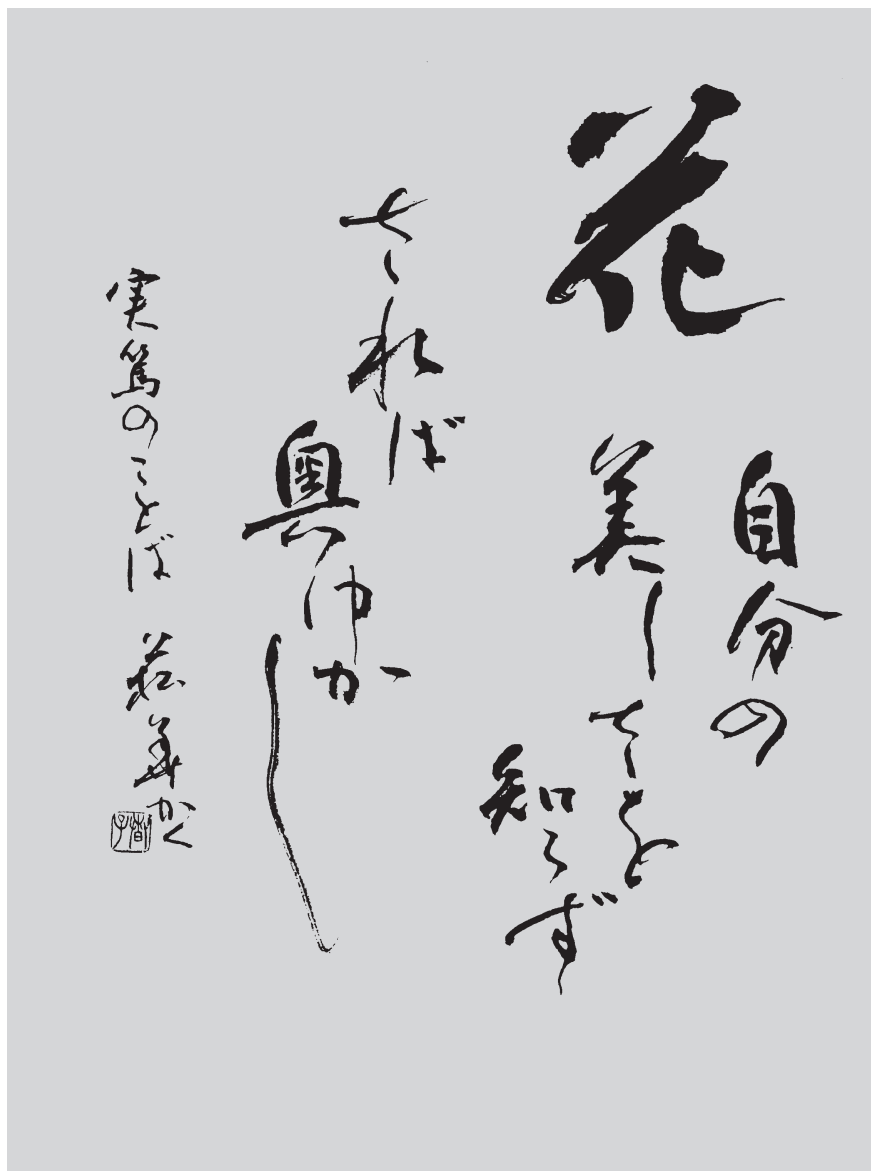 花
自分の
美しさを
知らず
されば
奥ゆかし
実篤のことば かく